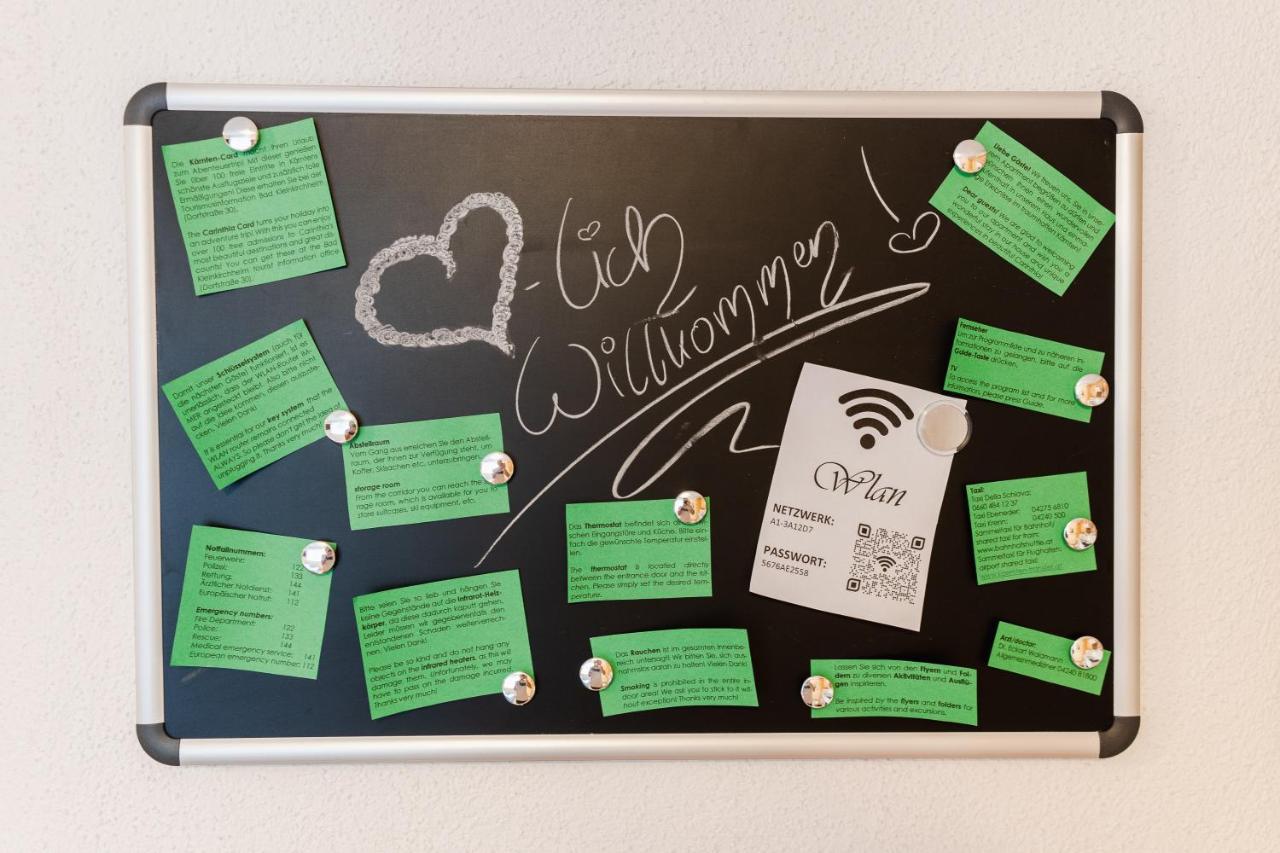 Die Kärnten-Card macht Ihren Urlaub
zum Abenteuertrip! Mit dieser genießen
Sie über 100 freie Eintritte in Kärntens
schönste Ausflugsziele und zusätzlich tolle
Ermäßigungen! Diese erhalten Sie bei der
Tourismusinformation Bad Kleinkirchheim
(Dorfstraße 30).
The Carinthia Card turns your holiday into
an adventure trip! With this you can enjoy
over 100 free admissions to Carinthia's
most beautiful destinations and great dis-
counts! You can get these at the Bad
Kleinkirchheim tourist information office
(Dorfstraße 30).
-lich
Willkommen!
Liebe Gäste! Wir freuen uns, Sie in unse-
rem Apartment begrüßen zu dürfen und
wünschen Ihnen einen wundervollen
Aufenthalt in unserem Haus und einma-
lige Erlebnisse im traumhaften Kärnten!
Dear guests! We are glad to welcoming
you to our apartment and wish you a
wonderful stay in our house and unique
experiences in beautiful Carinthia!
Damit unser Schlüsselsystem (auch für
die nächsten Gäste) funktioniert, ist es
unerlässlich, dass der WLAN-Router IM-
MER angesteckt bleibt. Also bitte nicht
auf die Idee kommen, diesen auszuste-
cken. Vielen Dank!
It is essential for our key system that the
WLAN router remains connected
ALWAYS. So please don't get the idea of
unplugging it. Thanks very much!
Abstellraum
Vom Gang aus erreichen Sie den Abstell-
raum, der Ihnen zur Verfügung steht, um
Koffer, Skisachen etc. unterzubringen.
storage room
From the corridor you can reach the sto-
rage room, which is available for you to
store suitcases, ski equipment, etc.
Fernseher
Um zur Programmliste und zu näheren In-
formationen zu gelangen, bitte auf die
Guide-Taste drücken.
TV
To access the program list and for more
information, please press Guide.
Wlan
NETZWERK:
A1-3A12D7
PASSWORT:
5676AE2558
Taxi:
Taxi Della Schiava:
0660 484 12 37
Taxi Ebeneder: 04275 6810
Taxi Krenn: 04240 500
Sammeltaxi für Bahnhof/
shared taxi for train:
www.bahnhofshuttle.at
Sammeltaxi für Flughafen/
airport shared taxi:
Notfallnummern:
Feuerwehr: 122
Polizei: 133
Rettung: 144
Ärztlicher Notdienst: 141
Europäischer Notruf: 112
Emergency numbers:
Fire Department: 122
Police: 133
Rescue: 144
Medical emergency service: 141
European emergency number: 112
Bitte seien Sie so lieb und hängen Sie
keine Gegenstände auf die Infrarot-Heiz-
körper, da diese dadurch kaputt gehen.
Leider müssen wir gegebenenfalls den
entstandenen Schaden weiterverrech-
nen. Vielen Dank!
Please be so kind and do not hang any
objects on the infrared heaters, as this will
damage them. Unfortunately, we may
have to pass on the damage incurred.
Thanks very much!
Das Thermostat befindet sich direkt zwi-
schen Eingangstüre und Küche. Bitte ein-
fach die gewünschte Temperatur einstel-
len.
The thermostat is located directly
between the entrance door and the kit-
chen. Please simply set the desired tem-
perature.
Das Rauchen ist im gesamten Innenbe-
reich untersagt! Wir bitten Sie, sich aus-
nahmslos daran zu halten! Vielen Dank!
Smoking is prohibited in the entire in-
door area! We ask you to stick to it wit-
hout exception! Thanks very much!
Lassen Sie sich von den Flyern und Fol-
dern zu diversen Aktivitäten und Ausflü-
gen inspirieren.
Be inspired by the flyers and folders for
various activities and excursions.
Arzt/doctor:
Dr. Eckart Wakmann
Allgemeinmediziner 04240 81800